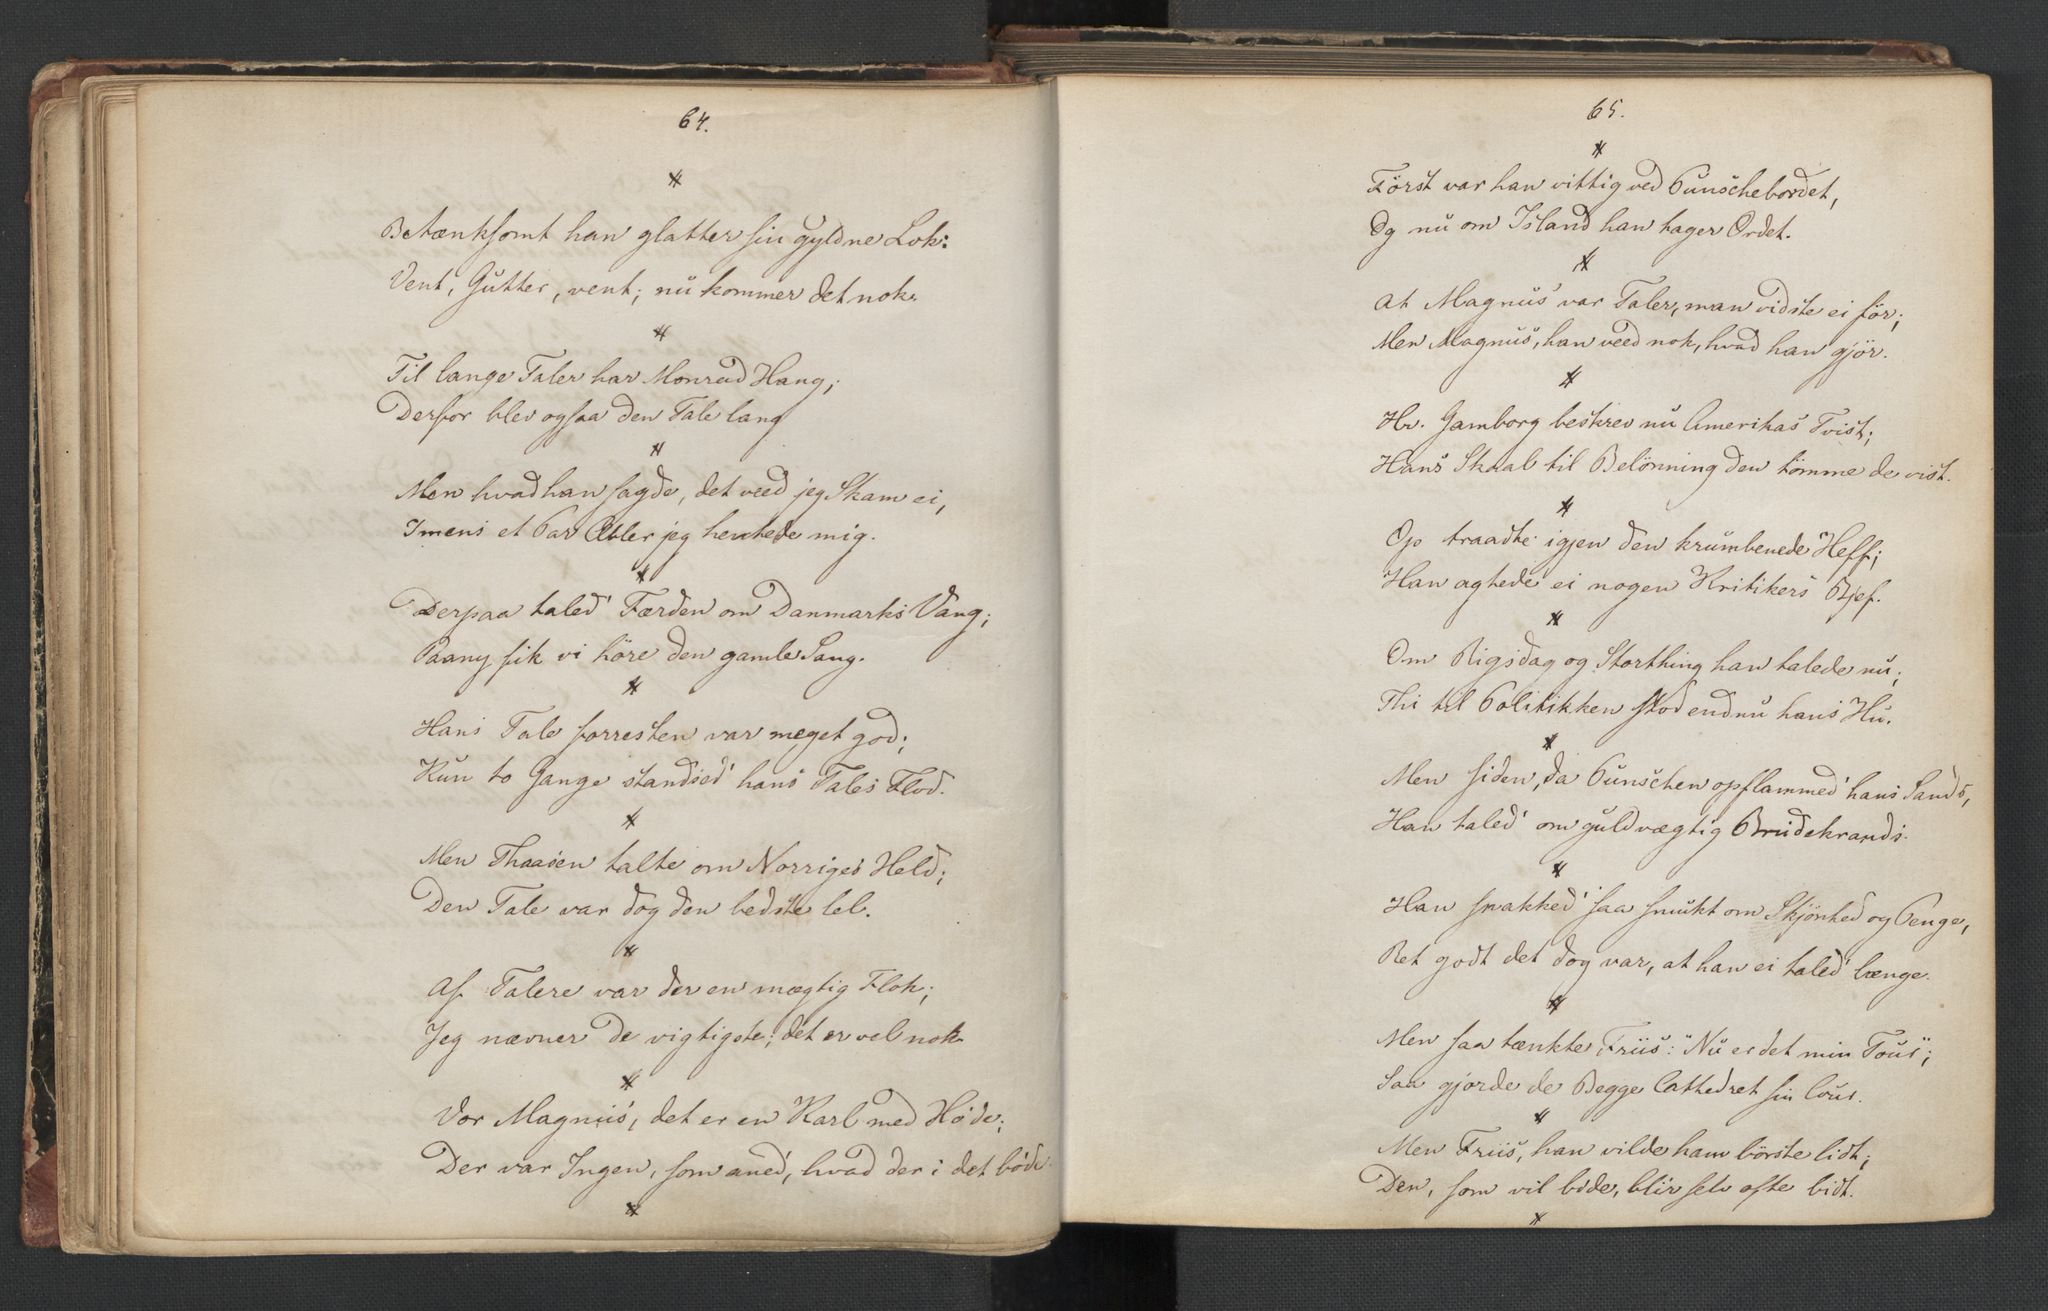 64.
Betænksomt han glatter sin gyldne Lok:
Vent, Gutter, vent; nu kommer det nok.
Til lange Taler har Monrad Hang;
Derfor blev ogsaa den Tale lang
Men hvad han sagde, det veed jeg Skam ei,
Imens et Par Æbler jeg hentede mig.
Derpaa taled' Færden om Danmarks Vang;
Paany fik vi höre den gamle Sang.
Hans Tale forresten var meget god;
Kun to Gange standsed' hans Tales Flod.
Men Thaasen talte om Norriges Held;
Den Tale var dog den bedste lel.
Af Talere var der en mægtig Flok;
Jeg nævner De vigtigste; det er vel nok
Vor Magnus, det er en Karl med Hode;
Der var Ingen, som aned', hvad der i det bode.
65.
Först var han vittig ved Punschebordet,
Og nu om Island han tager Ordet.
At Magnus var Taler, man vidste ei för;
Men Magnus, han veed nok, hvad han gjör.
Hr. Gamborg beskrev nu Amerikas Tvist;
Hans Skaal til Belönning den tömme de vist.
Op traadte igjen den krumbenede Heff;
Han agtede ei nogen Kritikers Bjef.
Om Rigsdag og Storthing han talede nu;
Thi til Politikken stod endnu hans Hu.
Men siden, da Punschen opflammed' hans Sands,
Han taled' om guldvægtig Brudekrands.
Han snakked' saa smukt om Skjönhed og Penge,
Ret godt det dog var, at han ei taled' længe.
Men saa tænkte Friis: "Nu er det min Tour";
Saa gjorde de Begge Cathedret sin Cour.
Men Friis, han vilde ham börste lidt;
Den, som vil bide, blir selv ofte bidt.